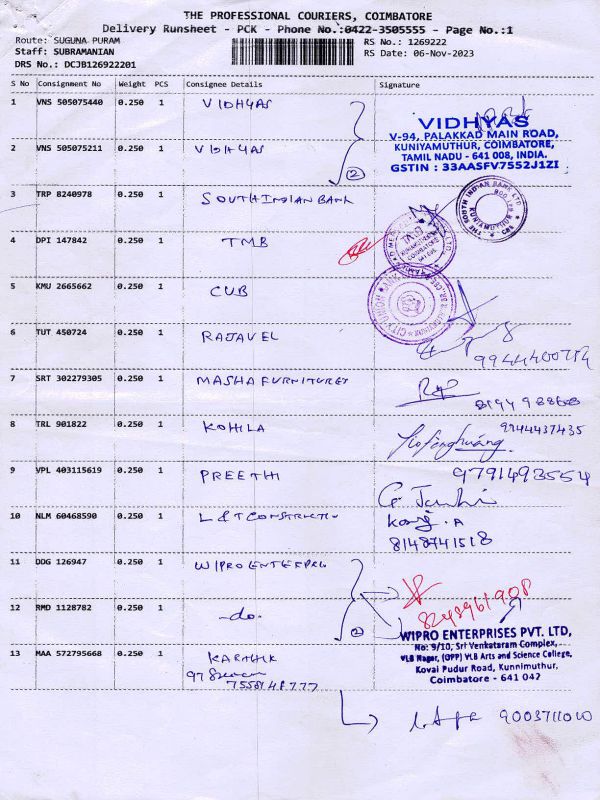 THE PROFESSIONAL COURIERS, COIMBATORE
Delivery Runsheet - PCK - Phone No.:0422-3505555 - Page No.:1
Route: SUGUNA PURAM
RS No.: 1269222
Staff: SUBRAMANIAN
RS Date: 06-Nov-2023
DRS No.: DCJB126922201
S No Consignment No Weight PCS Consignee Details Signature
1 VNS 505075440 0.250 1 VIDHYAS
VIDHYAS
V-94, PALAKKAD MAIN ROAD,
KUNIYAMUTHUR, COIMBATORE,
TAMIL NADU - 641 008, INDIA.
GSTIN : 33AASFV7552J1ZI
2 VNS 505075211 0.250 1 VIDHYAS
2
3 TRP 8240978 0.250 1 SOUTH INDIAN BANK
THE SOUTH INDIAN BANK LTD
4 DPI 147842 0.250 1 TMB
5 KMU 2665662 0.250 1 CUB
6 TUT 450724 0.250 1 RAJAVEL
7 SRT 302279305 0.250 1 MASHA FURNITURES
8 TRL 901822 0.250 1 KOHILA
9944437435
9 VPL 403115619 0.250 1 PREETHI
9791493554
10 NLM 60468590 0.250 1 L & T CONSTRUCTION
8148741518
11 DDG 126947 0.250 1 WIPRO ENTERPRIS
8248961908
12 RMD 1128782 0.250 1 -do.
2
WIPRO ENTERPRISES PVT. LTD,
No: 9/10, Sri Venkataram Complex,
VLB Nagar, (OPP) VLB Arts and Science College,
Kovai Pudur Road, Kunnimuthur,
Coimbatore - 641 042
13 MAA 572795668 0.250 1 KARTHIK
7558148777
9003711010